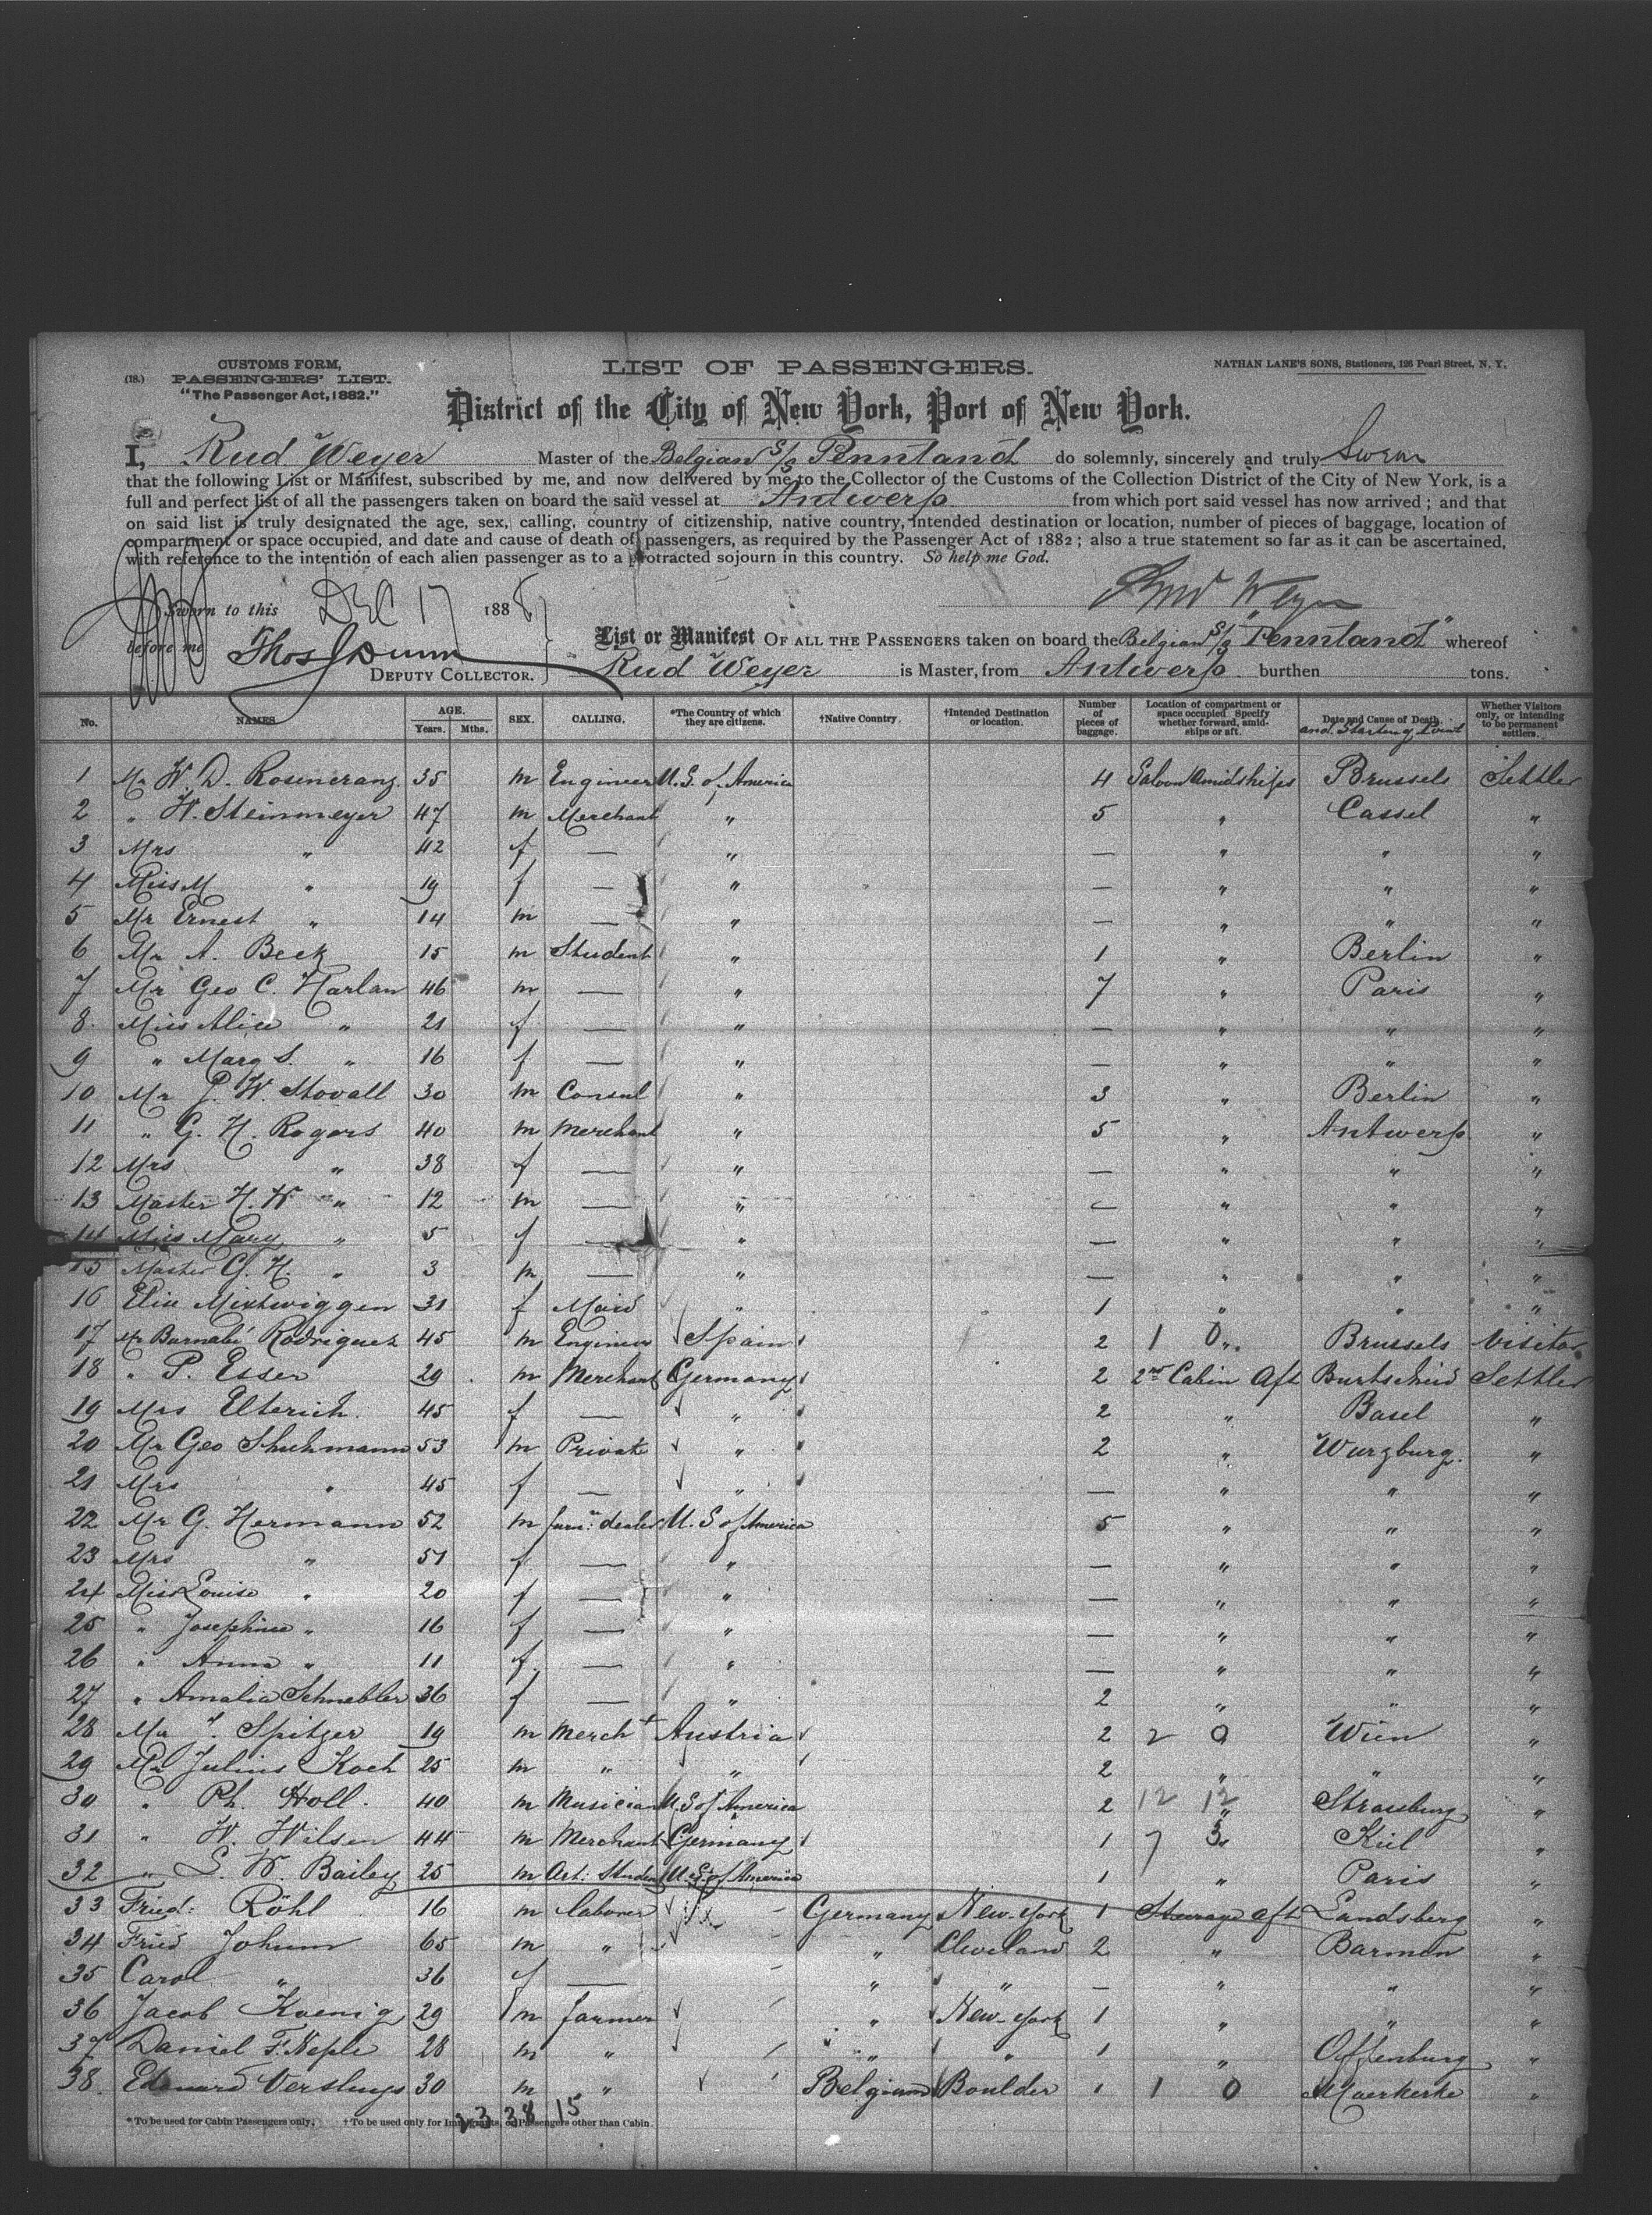 CUSTOMS FORM,
(18.) PASSENGERS' LIST.
"The Passenger Act, 1882."
LIST OF PASSENGERS.
NATHAN LANE'S SONS, Stationers, 126 Pearl Street, N. Y.
District of the City of New York, Port of New York.
I, Rud Weyer Master of the Belgian S/S Pennland do solemnly, sincerely and truly Swear
that the following List or Manifest, subscribed by me, and now delivered by me to the Collector of the Customs of the Collection District of the City of New York, is a
full and perfect list of all the passengers taken on board the said vessel at Antwerp from which port said vessel has now arrived; and that
on said list is truly designated the age, sex, calling, country of citizenship, native country, intended destination or location, number of pieces of baggage, location of
compartment or space occupied, and date and cause of death of passengers, as required by the Passenger Act of 1882; also a true statement so far as it can be ascertained,
with reference to the intention of each alien passenger as to a protracted sojourn in this country. So help me God.
Rud Weyer
Sworn to this DEC 17 1888
before me Thos J Dunn
DEPUTY COLLECTOR.
List or Manifest OF ALL THE PASSENGERS taken on board the Belgian S/S "Pennland" whereof
Rud Weyer is Master, from Antwerp burthen tons.
No. NAMES. AGE. Years. Mths. SEX. CALLING. *The Country of which they are citizens. †Native Country. †Intended Destination or location. Number of pieces of baggage. Location of compartment or space occupied Specify whether forward, amidships or aft. Date and Cause of Death. and Starting Point Whether Visitors only, or intending to be permanent settlers.
1 Mr W. D. Rosencranz 35 m Engineer U.S. of America 4 Saloon Amidships Brussels Settler
2 " W. Steinmeyer 47 m Merchant " 5 " Cassel "
3 Mrs " 42 f — " — " " "
4 Miss M " 19 f — " — " " "
5 Mr Ernest " 14 m — " — " " "
6 Mr A. Beck 15 m Student " 1 " Berlin "
7 Mr Geo C. Harlan 46 m — " 7 " Paris "
8 Miss Alice " 21 f — " — " " "
9 " Marg S. " 16 f — " — " " "
10 Mr P. W. Stovall 30 m Consul " 3 " Berlin "
11 " G. H. Rogers 40 m Merchant " 5 " Antwerp "
12 Mrs " 38 f — " — " " "
13 Master H. W " 12 m — " — " " "
14 Miss Mary " 5 f — " — " " "
15 Master G. H. " 3 m — " — " " "
16 Elise 31 f Maid " 1 " " "
17 Mr Barnabé Rodriguez 45 m Engineer Spain 2 1 0 " Brussels Visitor
18 " P. Esser 29 m Merchant Germany 2 2nd Cabin Aft Burtscheid Settler
19 Mrs Elterich 45 f — " 2 " Basel "
20 Mr Geo Shuhmann 53 m Private " 2 " Wurzburg. "
21 Mrs " 45 f — " — " " "
22 Mr G. Hermann 52 m furn: dealer U. S of America 5 " " "
23 Mrs " 51 f — " — " " "
24 Miss Louise " 20 f — " — " " "
25 " Josephine " 16 f — " — " " "
26 " Anna " 11 f — " — " " "
27 " Amalia Schnebler 36 f — " 2 " " "
28 Mr Spitzer 19 m Mercht Austria 2 2 0 Wien "
29 Mr Julius Koch 25 m " " 2 " " "
30 " Ph. Holl. 40 m Musician U.S of America 2 12 12 " Strassburg "
31 " W. Wilsen 44 m Merchant Germany 1 7 5 " Kiel "
32 " S. W. Bailey 25 m Art: Student U.S. of America 1 " Paris "
33 Fried: Röhl 16 m laborer Germany New-York 1 Steerage aft Landsberg "
34 Fried Johann 65 m " " Cleveland 2 " Barmen "
35 Carol " 36 f — " " — " " "
36 Jacob Koenig 29 m farmer " New-York 1 " " "
37 Daniel F. Neple 28 m " " " 1 " Offenburg "
38. Edouard Versluys 30 m " Belgium Boulder 1 1 0 Moerkerke "
*To be used for Cabin Passengers only. †To be used only for Immigrants, or Passengers other than Cabin.
23 38 15